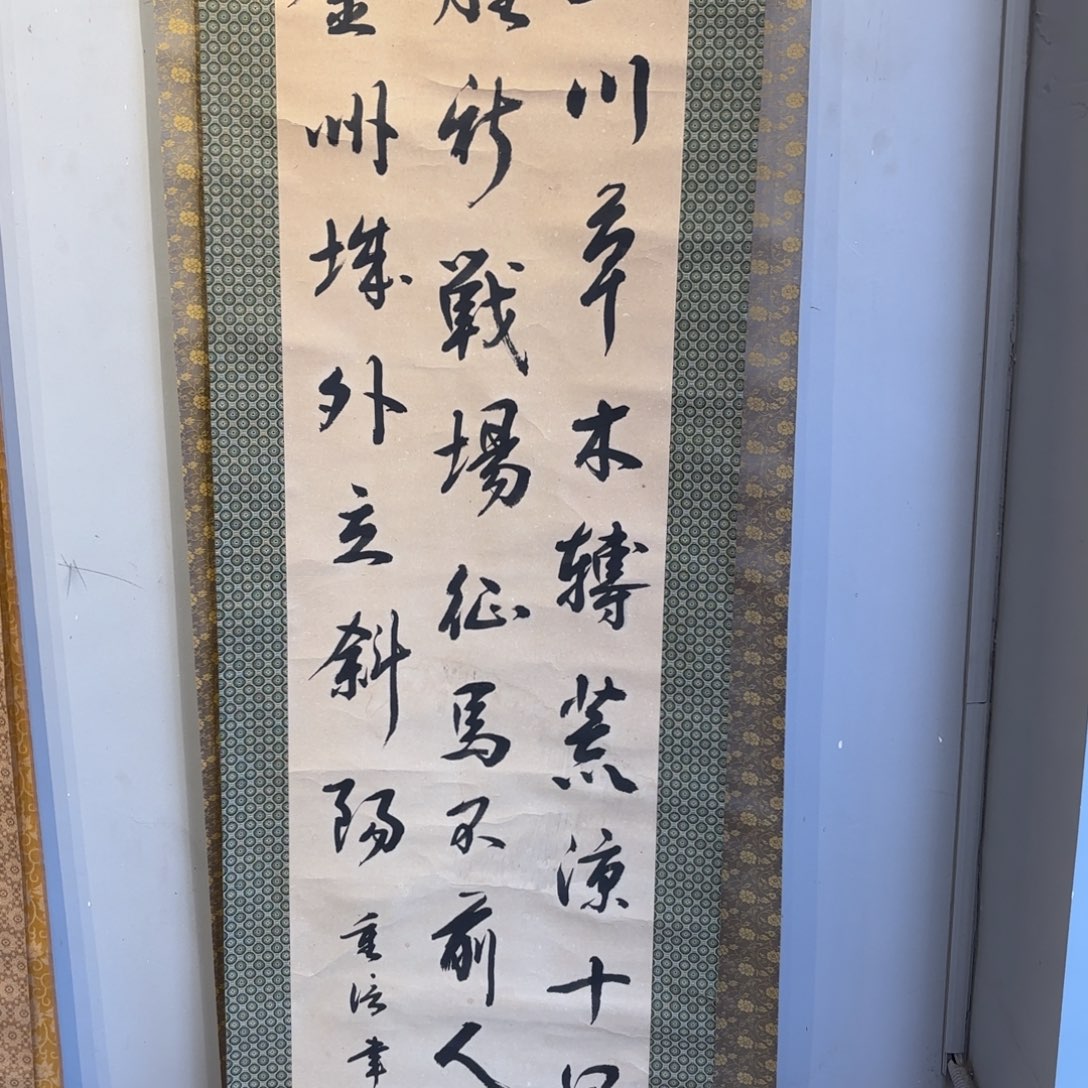 川草木轉荒涼十
新戰場征馬不前人
州城外立斜陽